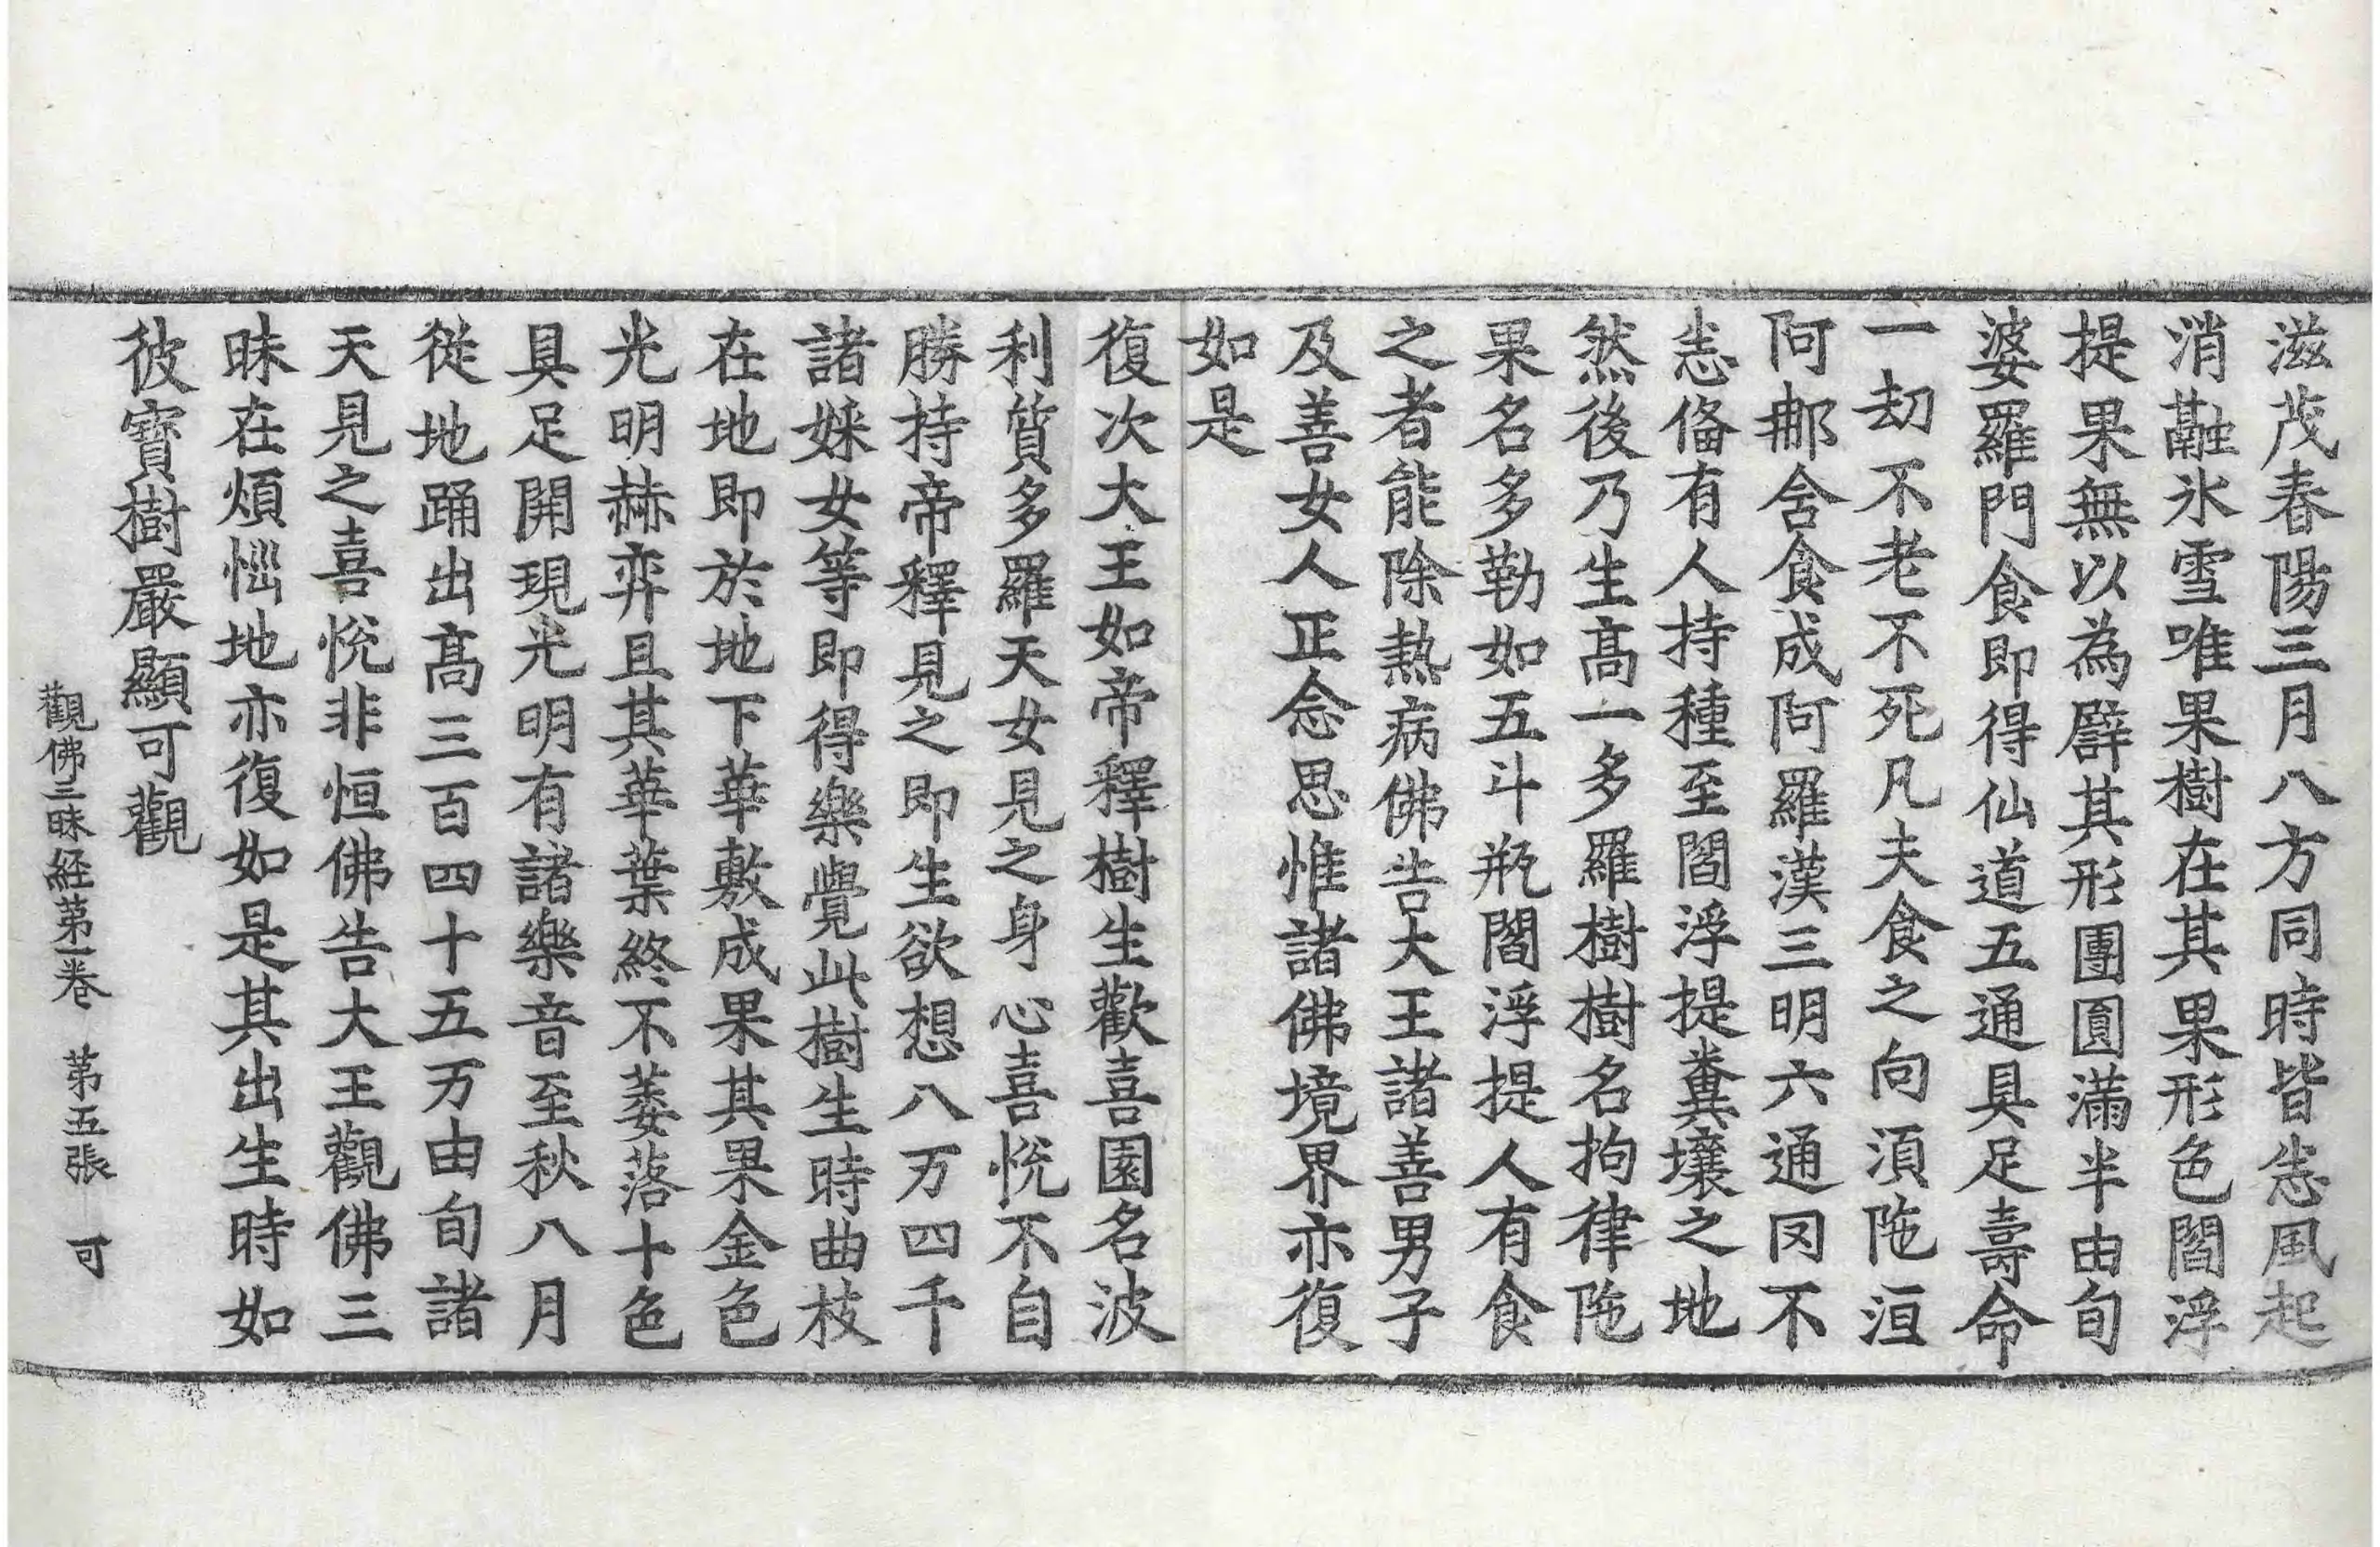 滋茂春陽三月八方同時皆悉風起
消融氷雪唯果樹在其果形色閻浮
提果無以為譬其形團圓滿半由旬
婆羅門食即得仙道五通具足壽命
一劫不老不死凡夫食之向湏陁洹
阿郍舍食成阿羅漢三明六通罔不
悉俻有人持種至閻浮提糞壤之地
然後乃生髙一多羅樹樹名拘律陁
果名多勒如五斗瓶閻浮提人有食
之者能除熱病佛告大王諸善男子
及善女人正念思惟諸佛境界亦復
如是
復次大王如帝釋樹生歡喜園名波
利質多羅天女見之身心喜恱不自
勝持帝釋見之即生欲想八万四千
諸婇女等即得樂覺此樹生時曲枝
在地即於地下華敷成果其果金色
光明赫弈且其華葉終不萎落十色
具足開現光明有諸樂音至秋八月
從地踊出髙三百四十五万由旬諸
天見之喜恱非恒佛告大王觀佛三
昧在煩惱地亦復如是其出生時如
彼寳樹嚴顯可觀
觀佛三昧経第一卷 第五張 可